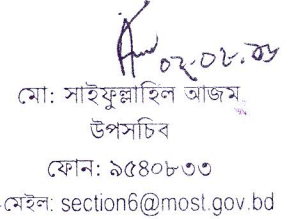 ০২.০৮.১৬
মো: সাইফুল্লাহিল আজম
উপসচিব
ফোন: ৯৫৪০৮৩৩
মেইল: section6@most.gov.bd